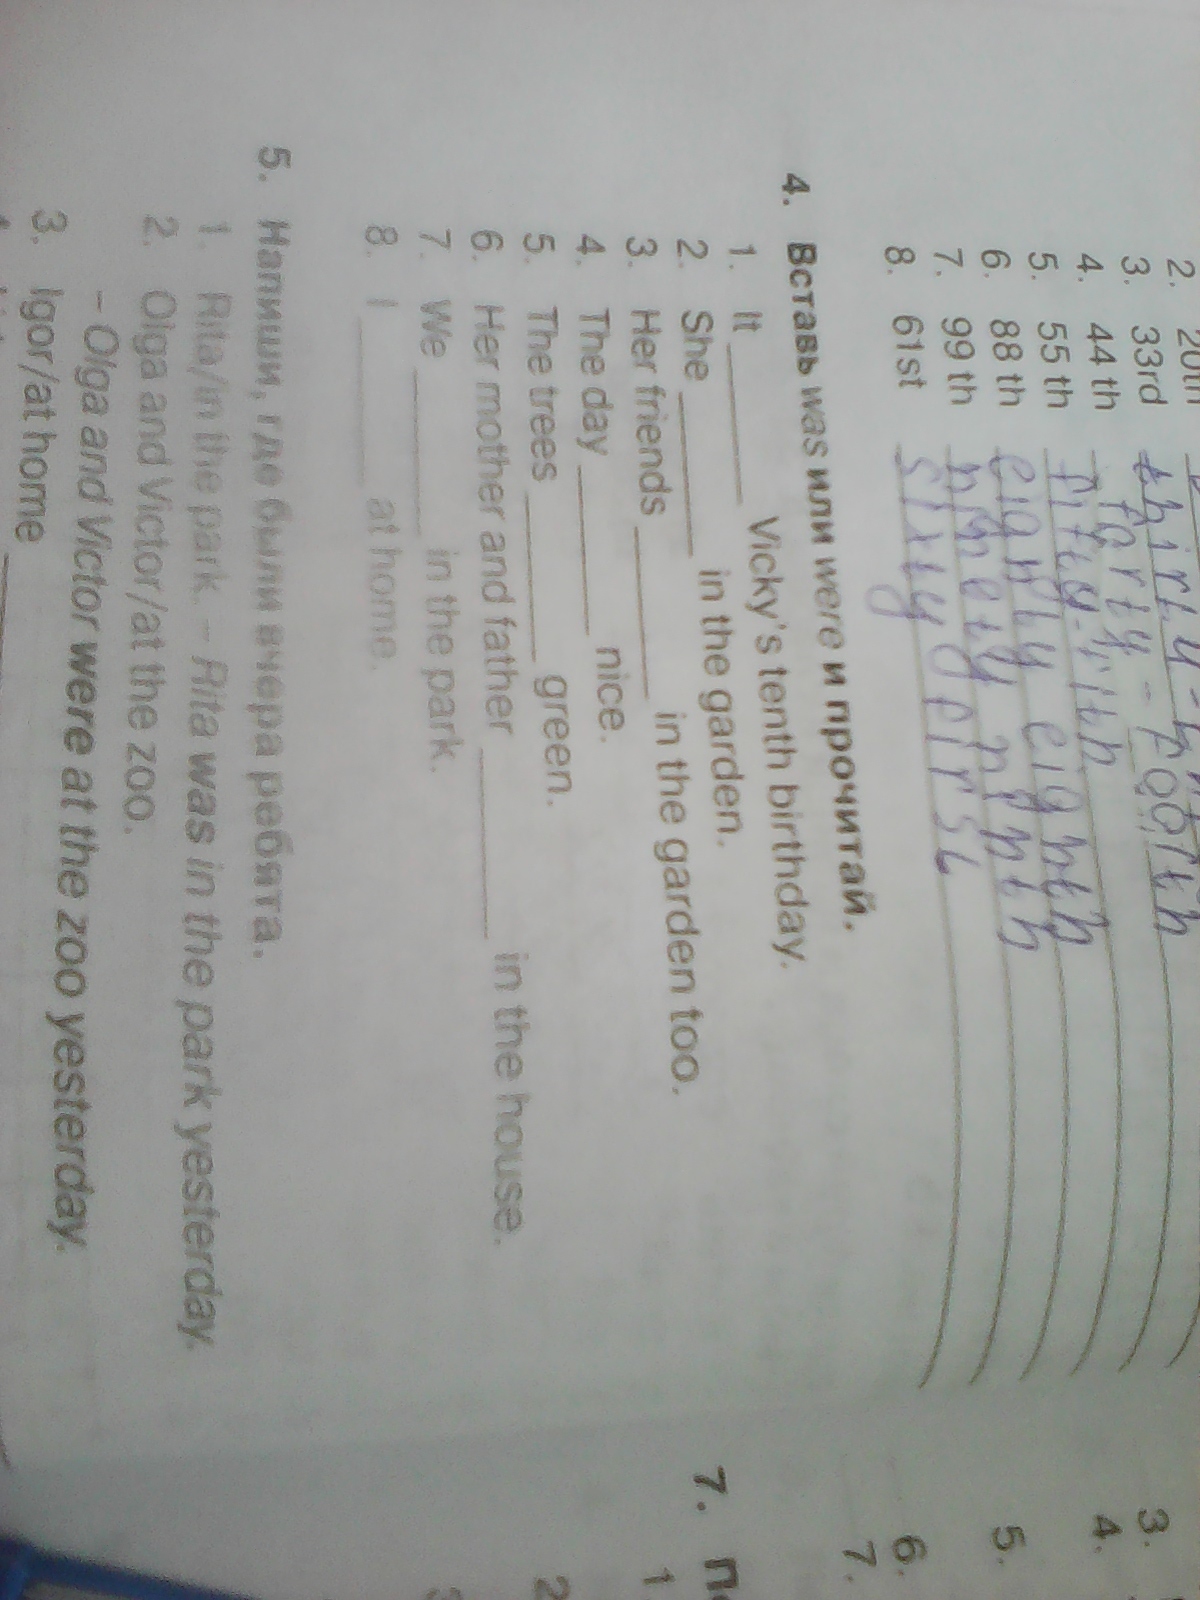 2. 20th
3. 33rd
4. 44 th forty-foorth
5. 55 th
6. 88 th eighty eighth
7. 99 th ninety nighth
8. 61st sixty first
4. Вставь was или were и прочитай.
1. It ______ Vicky's tenth birthday.
2. She ______ in the garden.
3. Her friends ______ in the garden too.
4. The day ______ nice.
5. The trees ______ green.
6. Her mother and father ______ in the house.
7. We ______ in the park.
8. I ______ at home.
5. Напиши, где были вчера ребята.
1. Rita/in the park – Rita was in the park yesterday.
2. Olga and Victor/at the zoo.
– Olga and Victor were at the zoo yesterday.
3. Igor/at home
3.
4.
5.
6.
7.
7.
1
2
3